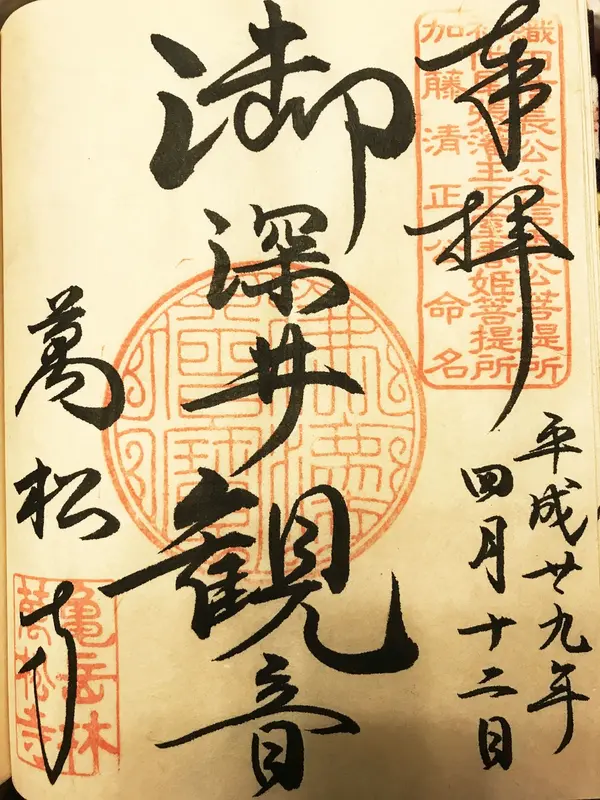 奉拝
織田信長公父信秀公菩提所
尾張藩主正室春姫菩提所
加藤清正公命名
平成廿九年
四月十二日
御深井観音
萬松寺
龜岳林
萬松寺